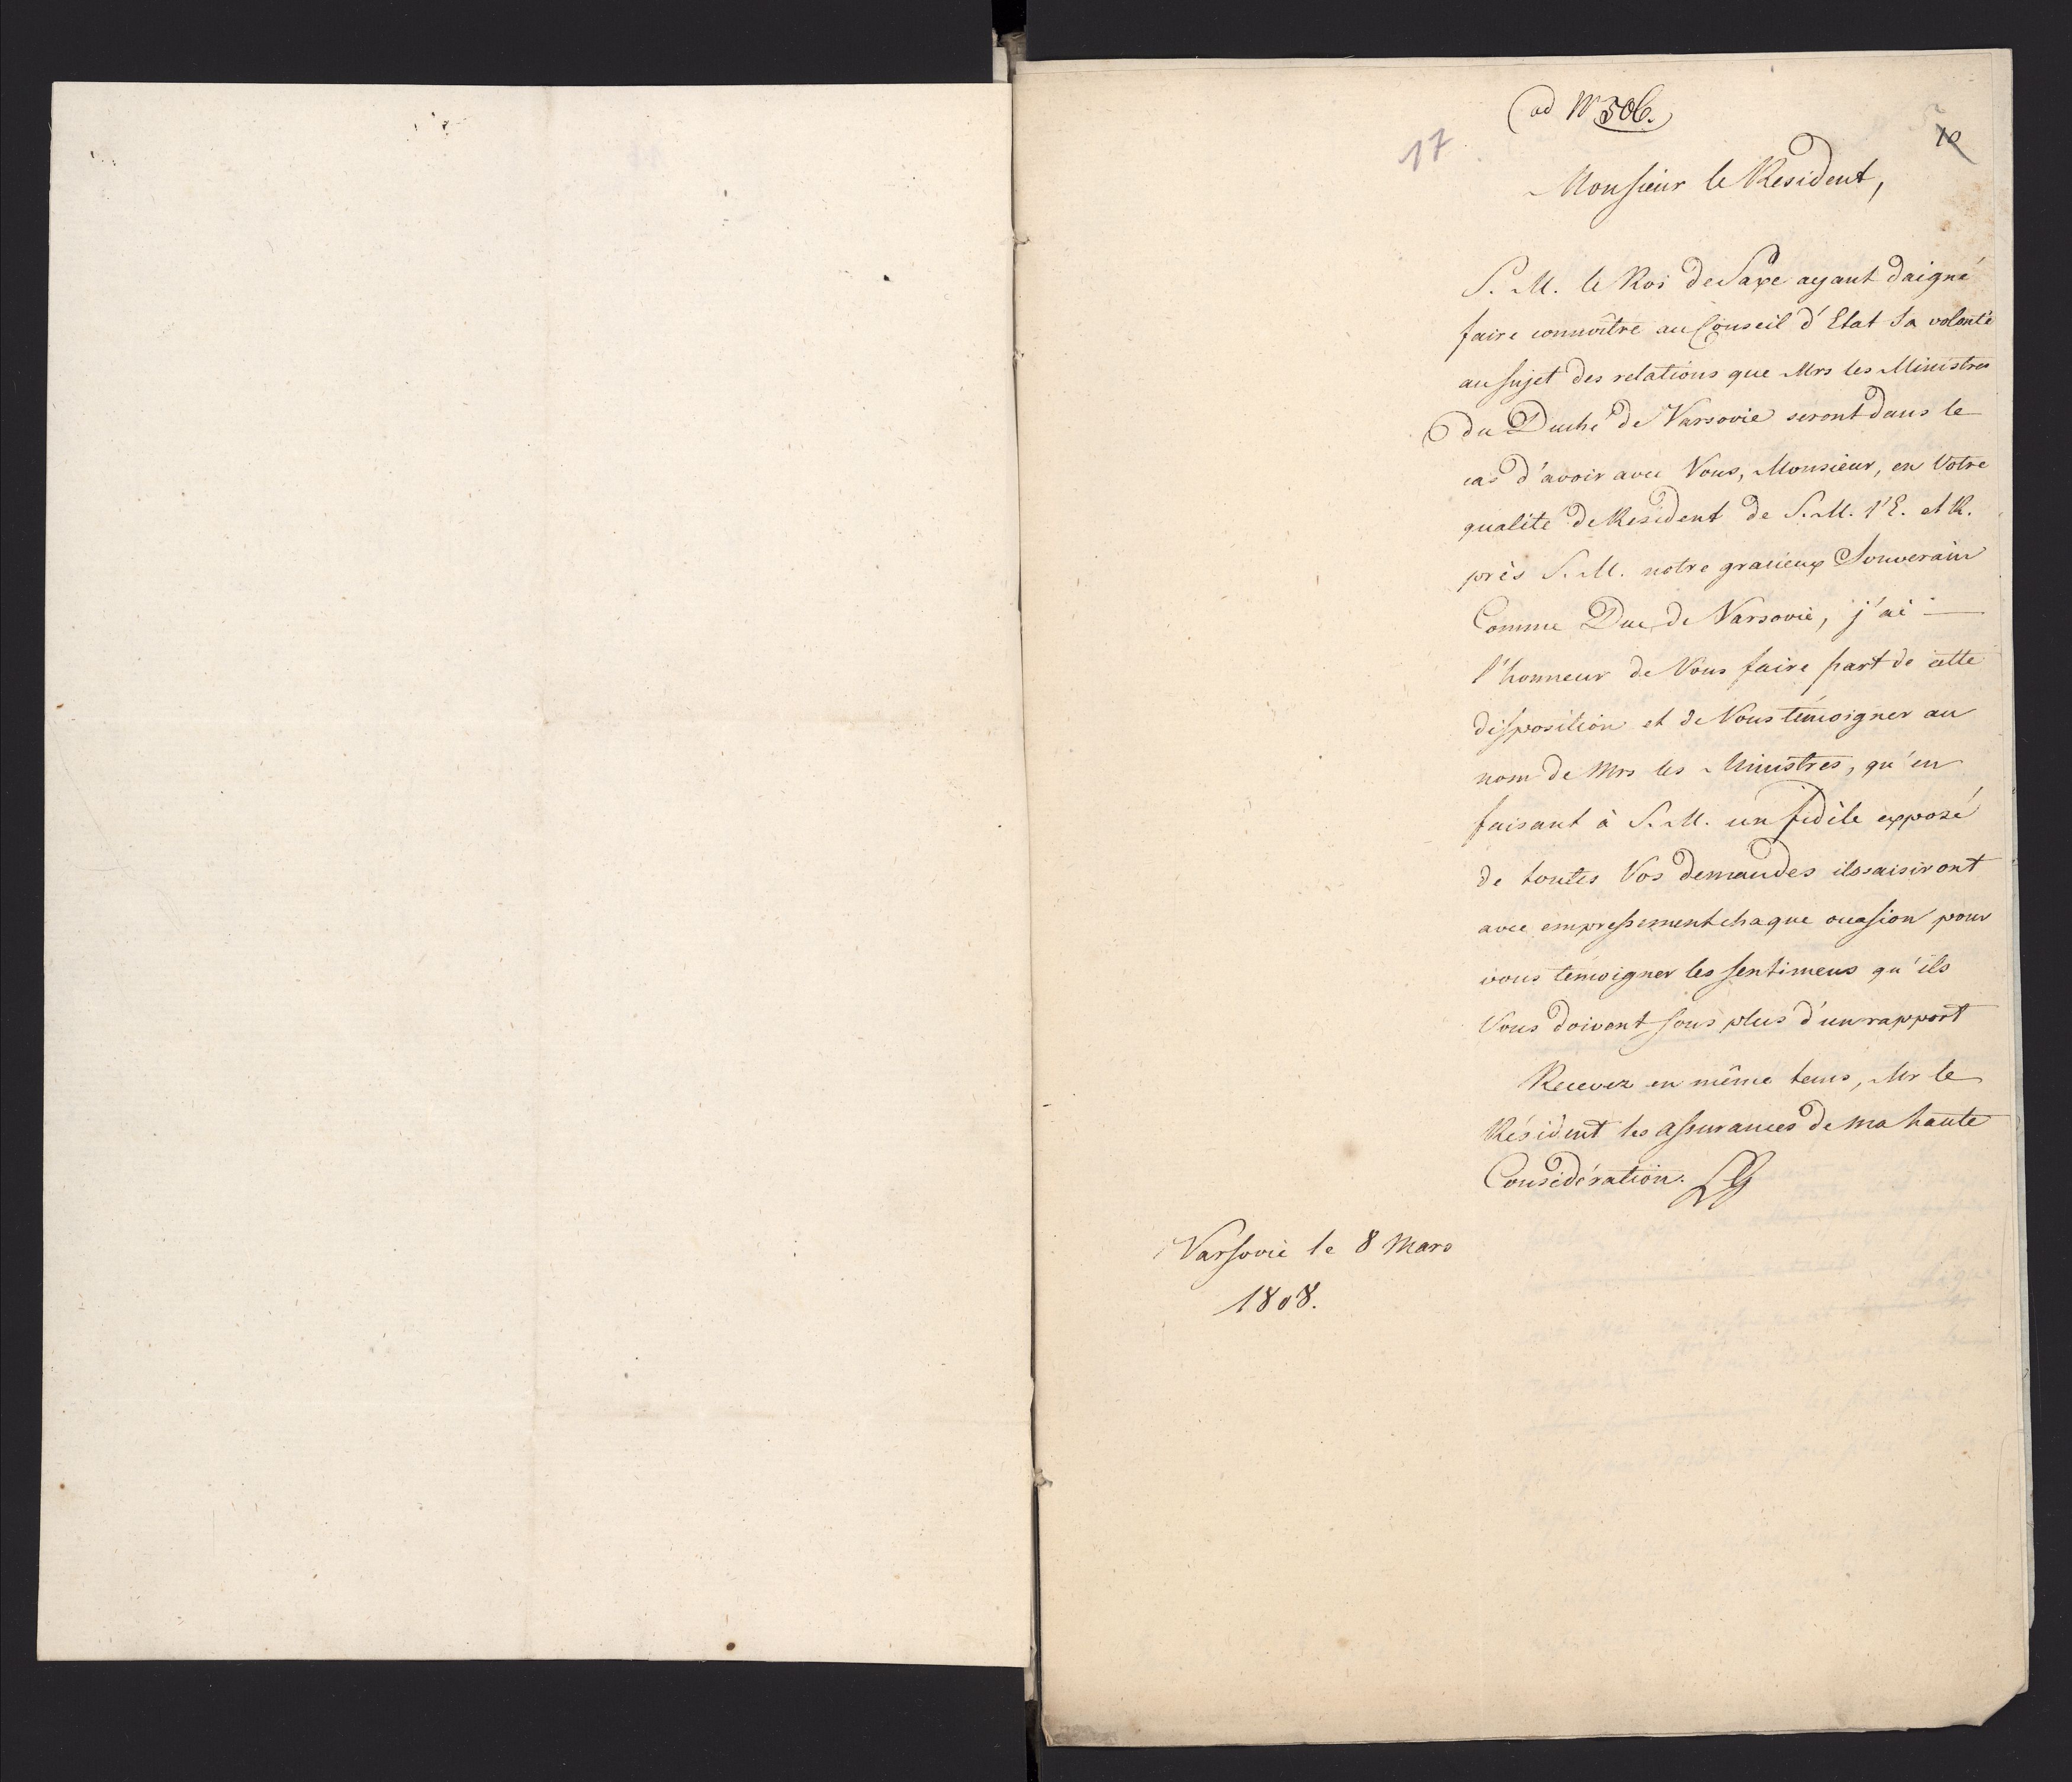 ad No 306.
17
10
Monsieur le Resident,
S. M. le Roi de Saxe ayant daigné
faire connoître au Conseil d'Etat Sa volonté
au sujet des relations que Mrs les Ministres
du Duché de Varsovie seront dans le
cas d'avoir avec Vous, Monsieur, en Votre
qualité de Resident de S. M. l'E. et R.
près S. M. notre gracieux Souverain
Comme Duc de Varsovie, j'ai
l'honneur de Vous faire part de cette
disposition et de Vous témoigner au
nom de Mrs les Ministres, qu'en
faisant à S. M. un fidèle exposé
de toutes Vos demandes ils saisiront
avec empressement chaque occasion pour
vous temoigner les sentimens qu'ils
Vous doivent sous plus d'un rapport
Recevez en même tems, Mr le
Résident les assurances de ma haute
Considération.
Varsovie le 8 Mars
1808.